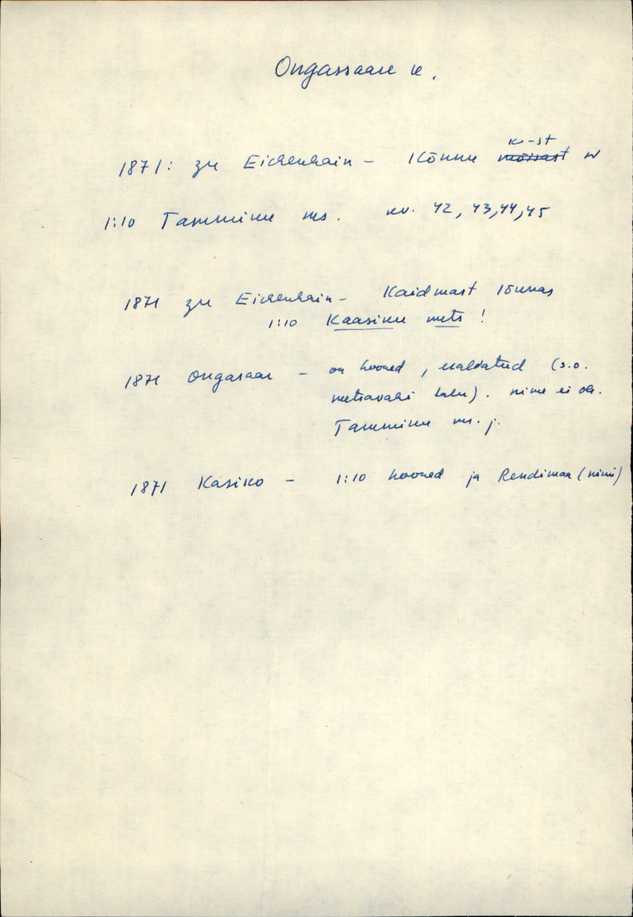 Ongassaare k.
1871: zu Eichenhain – Kõnnu k-st w
1:10 Tammiku ms. kv. 42, 43, 44, 45
1871 zu Eichenhain – Kaidmast lõunas
1:10 Kaasiku mets !
1871 Ongasaar – on hooned, (s.o.
metsavahi talu). nime ei ole.
Tammiku ms. j.
1871 Kasiko – 1:10 hooned ja Rendimaa (nimi)